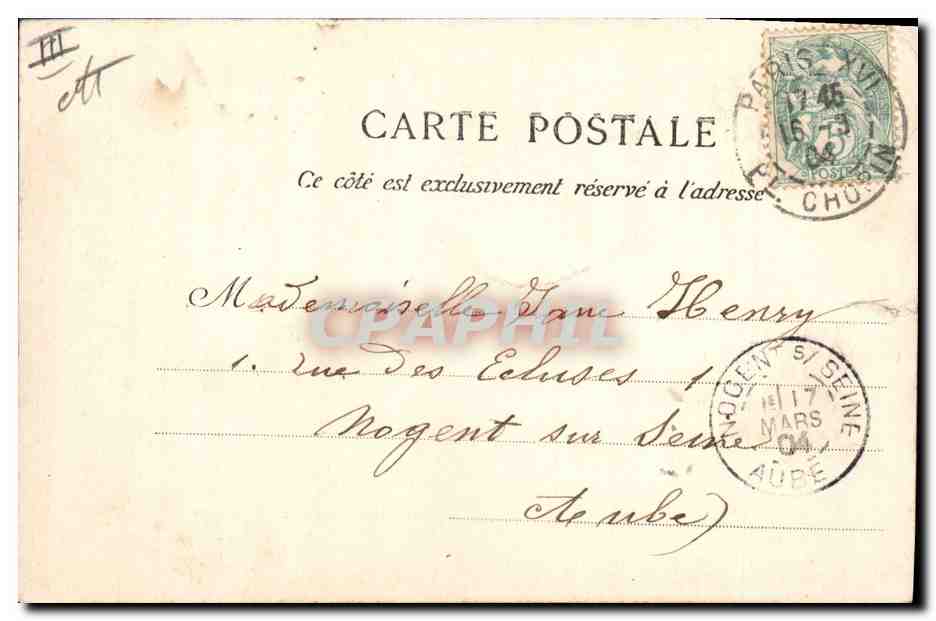 III
CARTE POSTALE
Ce côté est exclusivement réservé à l'adresse
PARIS XVI
17 45
16 - 3
04
PL. CHOPIN
5
POSTES
Mademoiselle Jane Henry
1. rue des Ecluses 1
Nogent sur Seine
(Aube)
CPAPHIL
NOGENT S/ SEINE
1E 17
MARS
04
AUBE